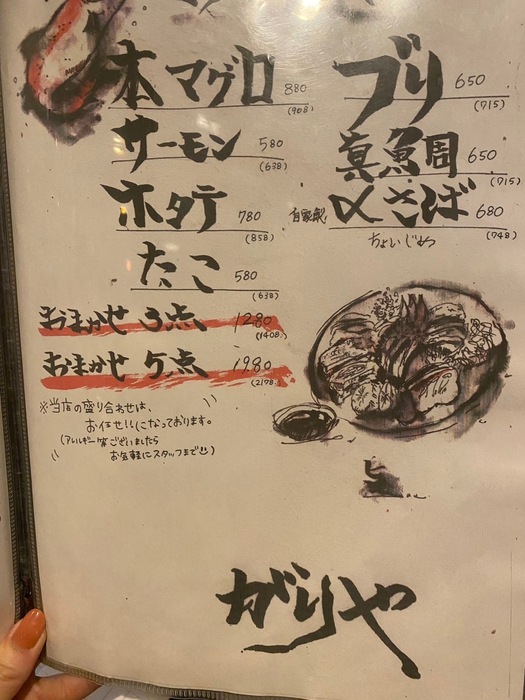 本マグロ 880
(968)
サーモン 580
(638)
ホタテ 780
(858)
たこ 580
(638)
おまかせ 3点 1280
(1408)
おまかせ 5点 1980
(2178)
※当店の盛り合わせは、
お任せ!!になっております。
(アレルギー等ございましたら
お気軽にスタッフまで)
ブリ 650
(715)
真魚周 650
(715)
自家製 〆さば 680
(748)
ちょいじめ
旨
がりや